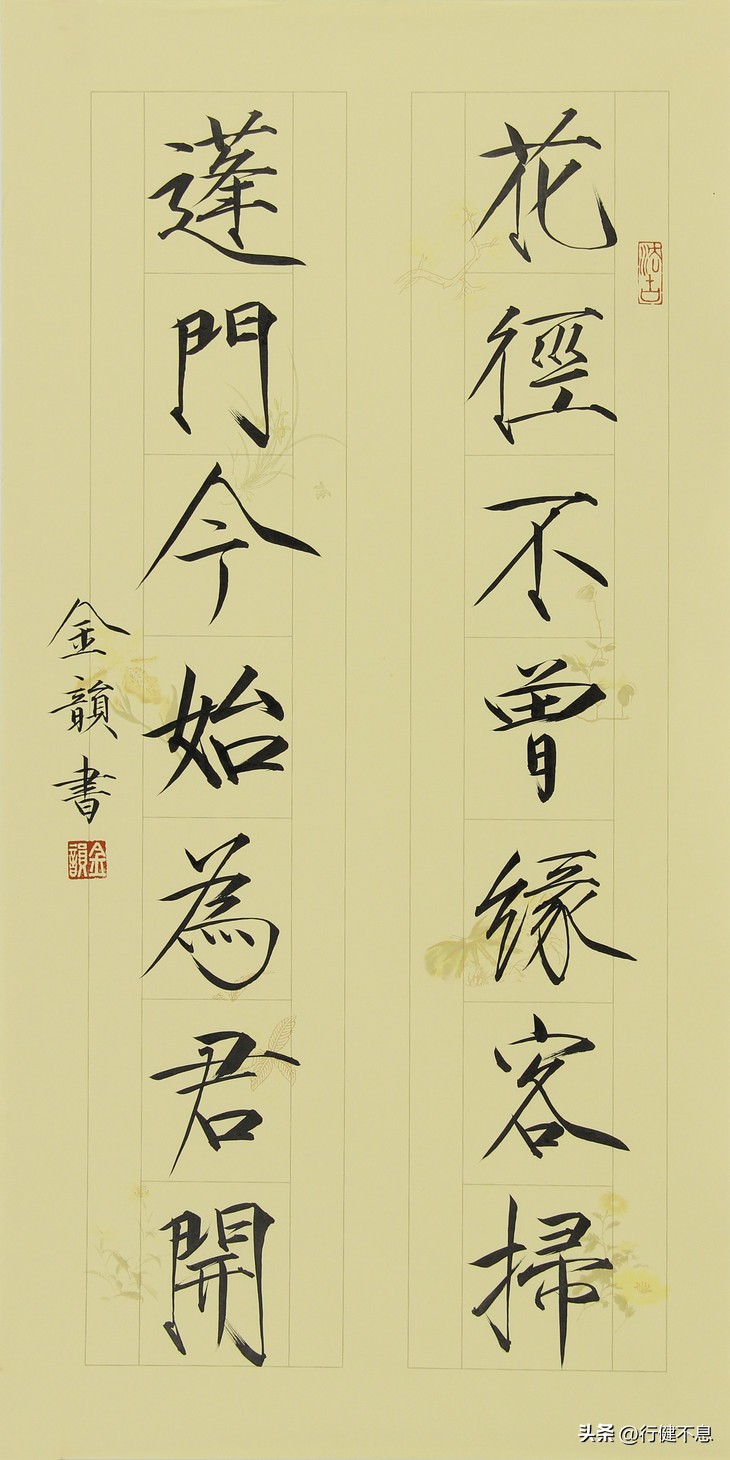 花徑不曾緣客掃
法古
蓬門今始為君開
金韻書
金韻
头条 @行健不息